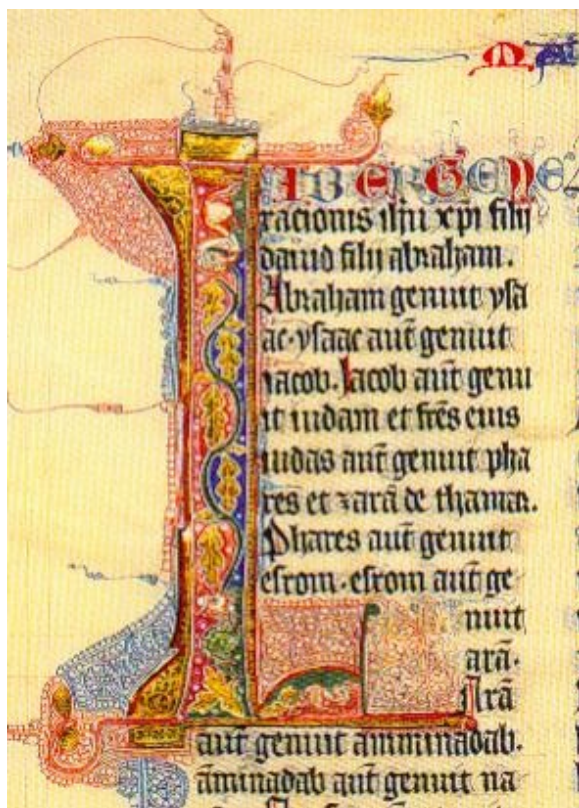 Mat
IBER GENE
racionis ihu xpi filij
dauid filij abraham.
Abraham genuit ysa
ac. ysaac aut̄ genuit
iacob. Iacob aut̄ genu
it iudam et fr̄es eius
iudas aut̄ genuit pha
res et zarā de thamar.
Phares aut̄ genuit
esrom. esrom aut̄ ge
nuit
arā.
Arā
aut̄ genuit amminadab.
āminadab aut̄ genuit na